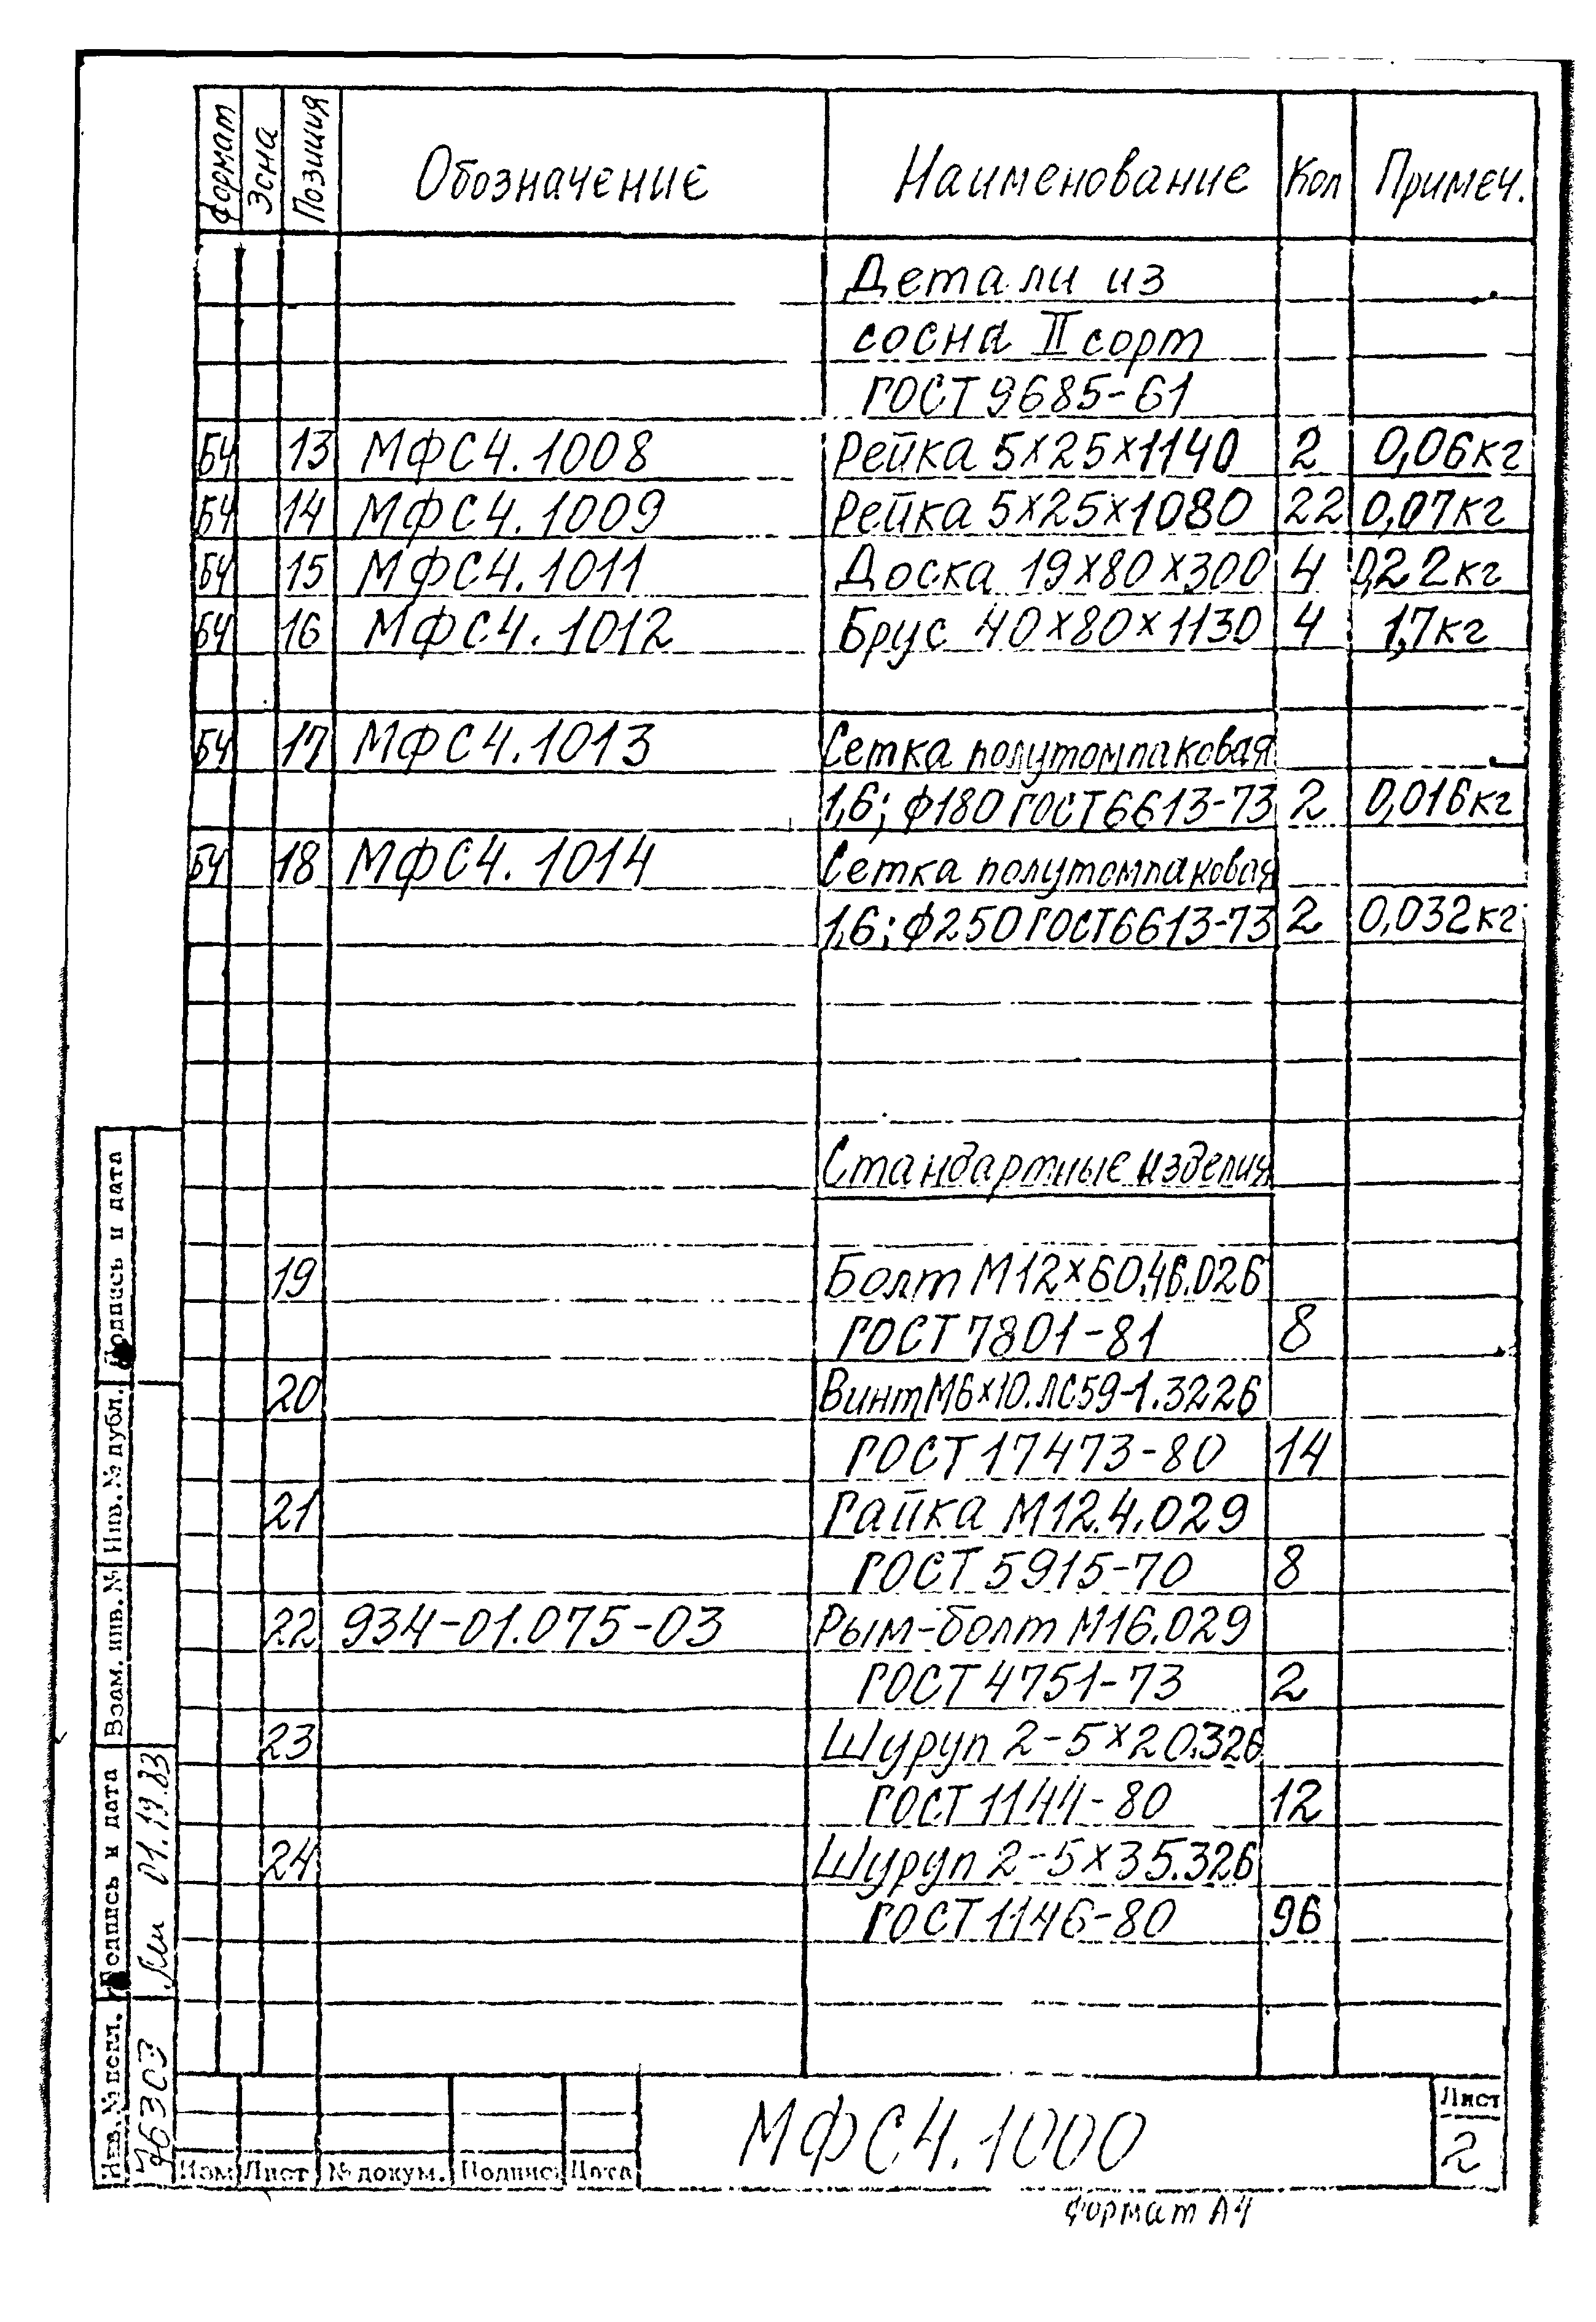 Формат Зона Позиция Обозначение Наименование Кол Примеч.
Детали из
сосна II сорт
ГОСТ 9685-61
БЧ 13 МФС4.1008 Рейка 5х25х1140 2 0,06кг
БЧ 14 МФС4.1009 Рейка 5х25х1080 22 0,07кг
БЧ 15 МФС4.1011 Доска 19х80х300 4 0,22кг
БЧ 16 МФС4.1012 Брус 40х80х1130 4 1,7кг
БЧ 17 МФС4.1013 Сетка полутомпаковая
1,6; ф180 ГОСТ 6613-73 2 0,016кг
БЧ 18 МФС4.1014 Сетка полутомпаковая
1,6; ф250 ГОСТ 6613-73 2 0,032кг
Стандартные изделия
19 Болт М12х60.46.026
ГОСТ 7801-81 8
20 Винт М6х10.ЛС59-1.3226
ГОСТ 17473-80 14
21 Гайка М12.4.029
ГОСТ 5915-70 8
22 934-01.075-03 Рым-болт М16.029
ГОСТ 4751-73 2
23 Шуруп 2-5х20.326
ГОСТ 1144-80 12
24 Шуруп 2-5х35.326
ГОСТ 1146-80 96
Подпись и дата
Инв. № дубл.
Взам. инв. №
Подпись и дата
Инв. № подл.
Изм Лист № докум. Подпись Дата
МФС4.1000
Лист
2
Формат А4